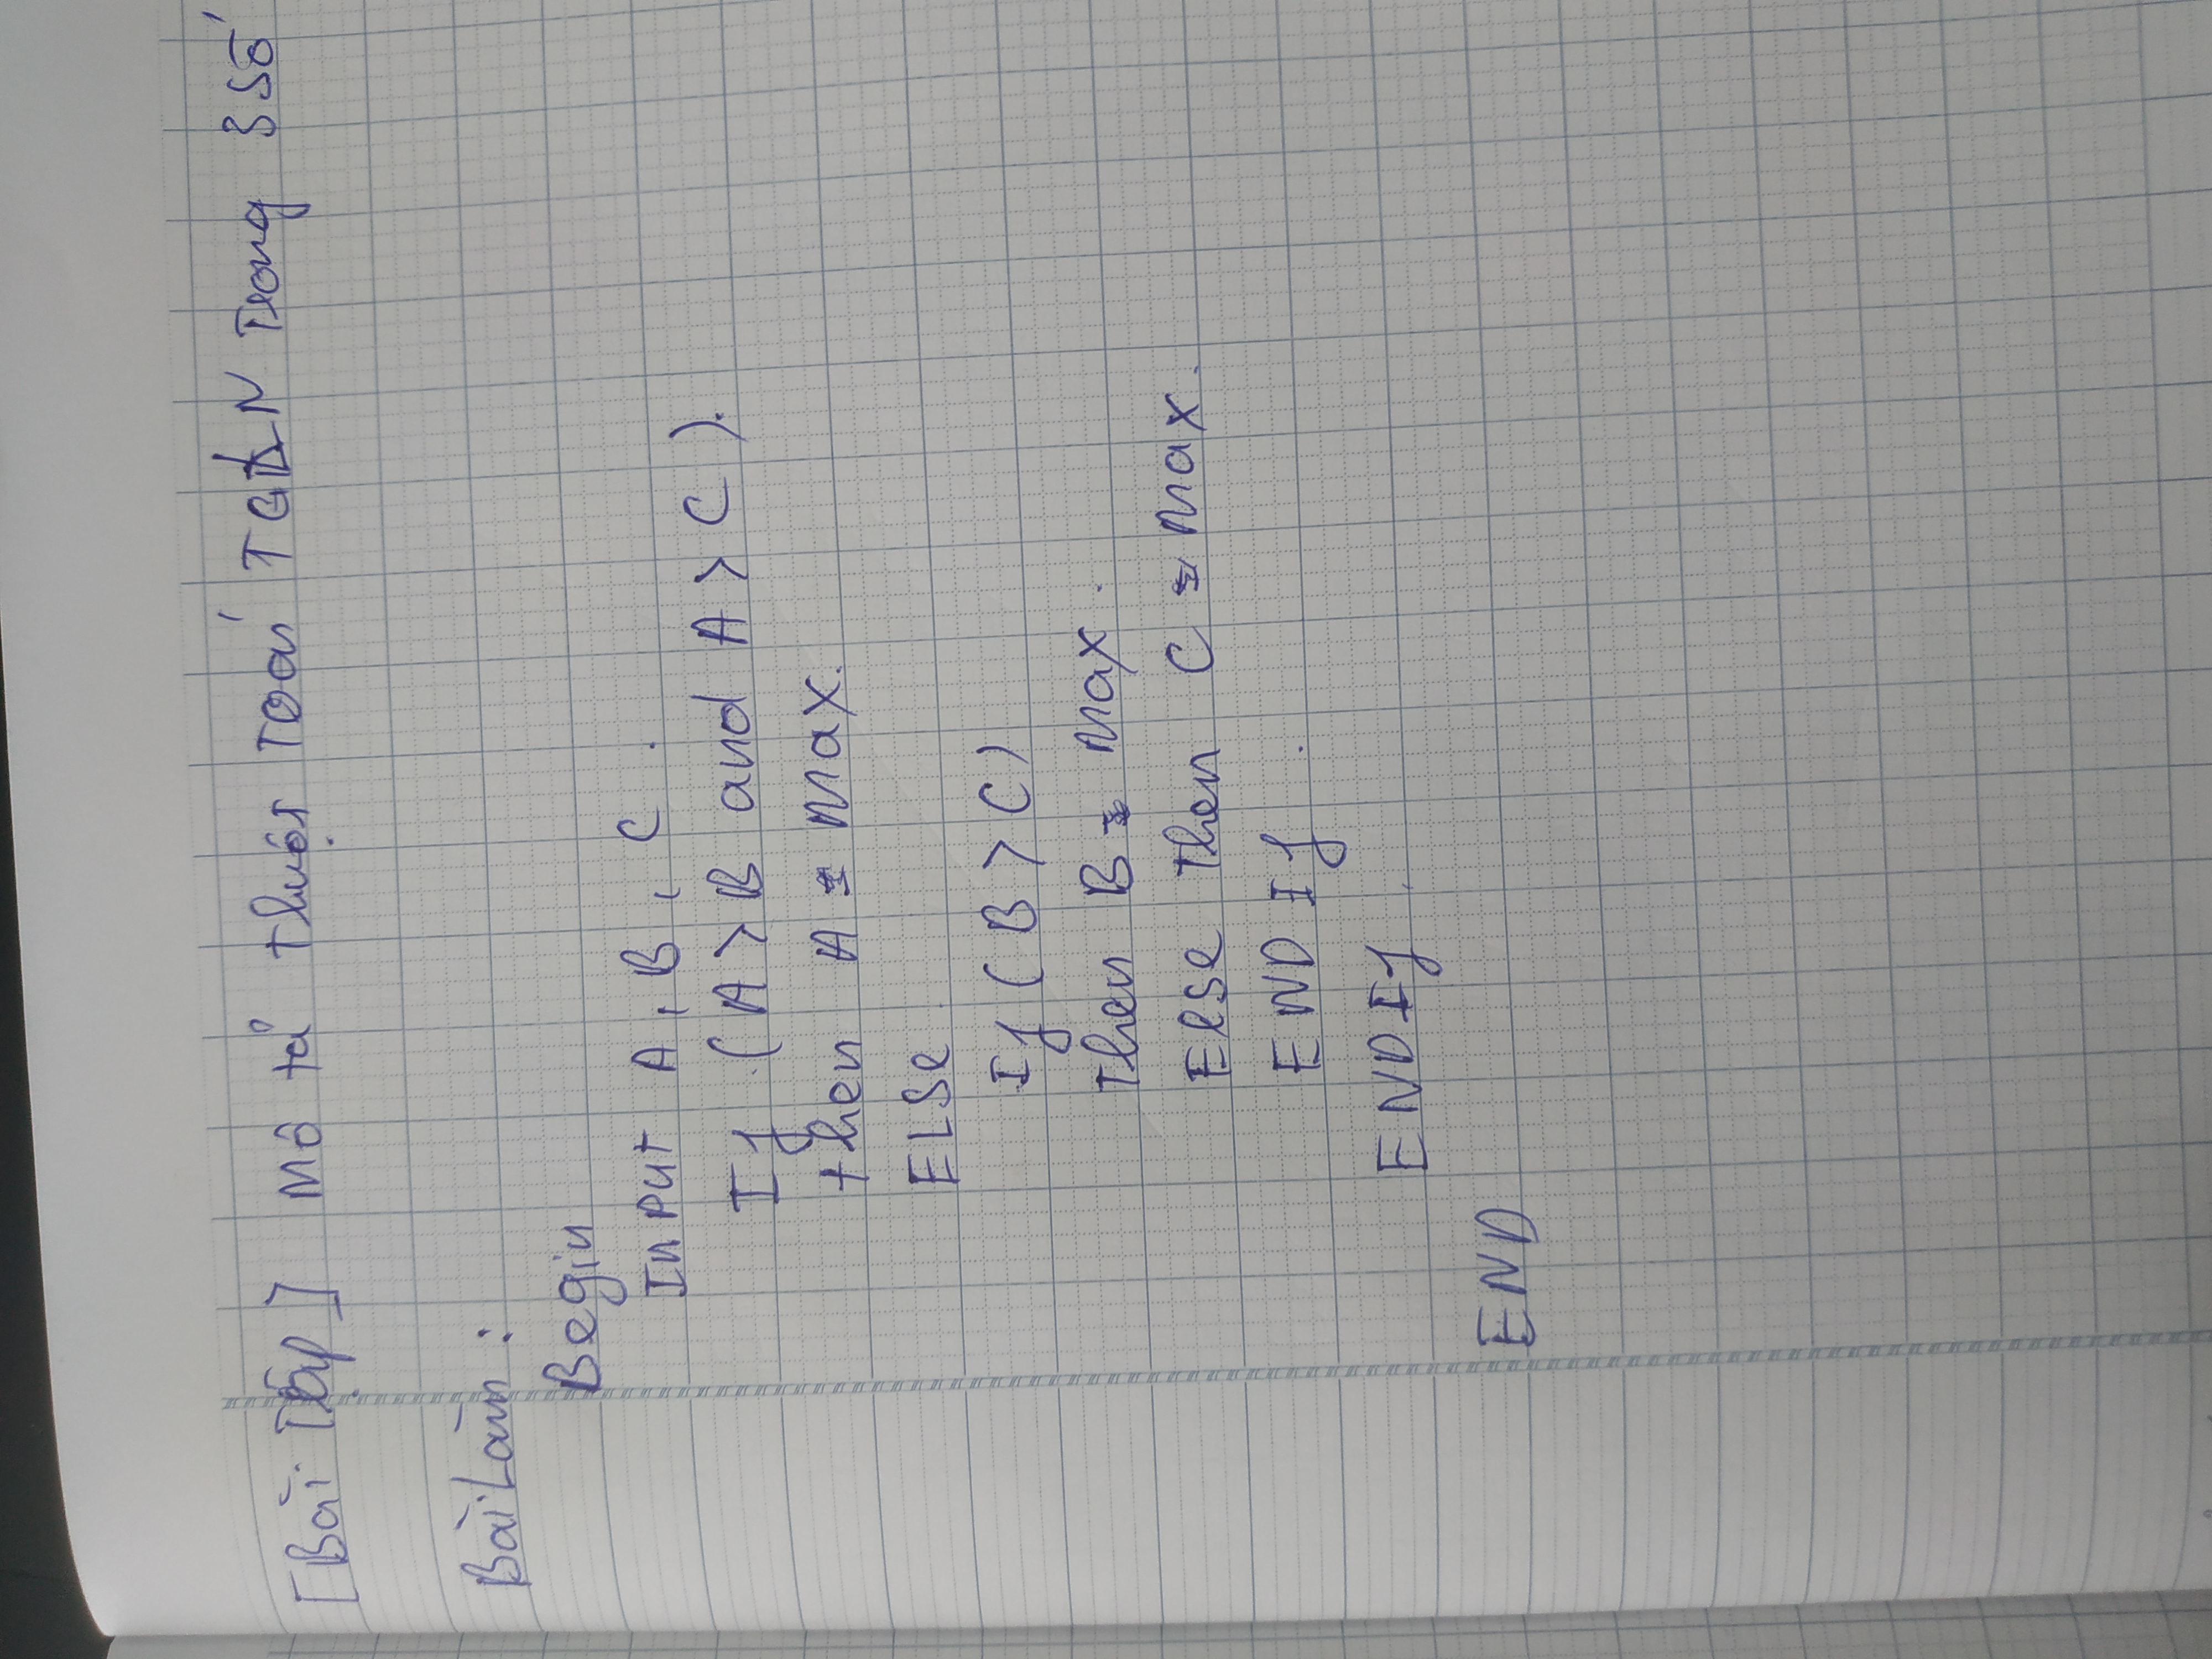 [Bài Tập] Mô tả thuật toán TGLN Trong 3 số
Bài Làm :
Begin
Input A, B, C.
If (A > B and A > C).
then A = Max.
ELSe
If (B > C)
Then B = Max.
Else Then C = Max.
END If.
ENDIf.
END